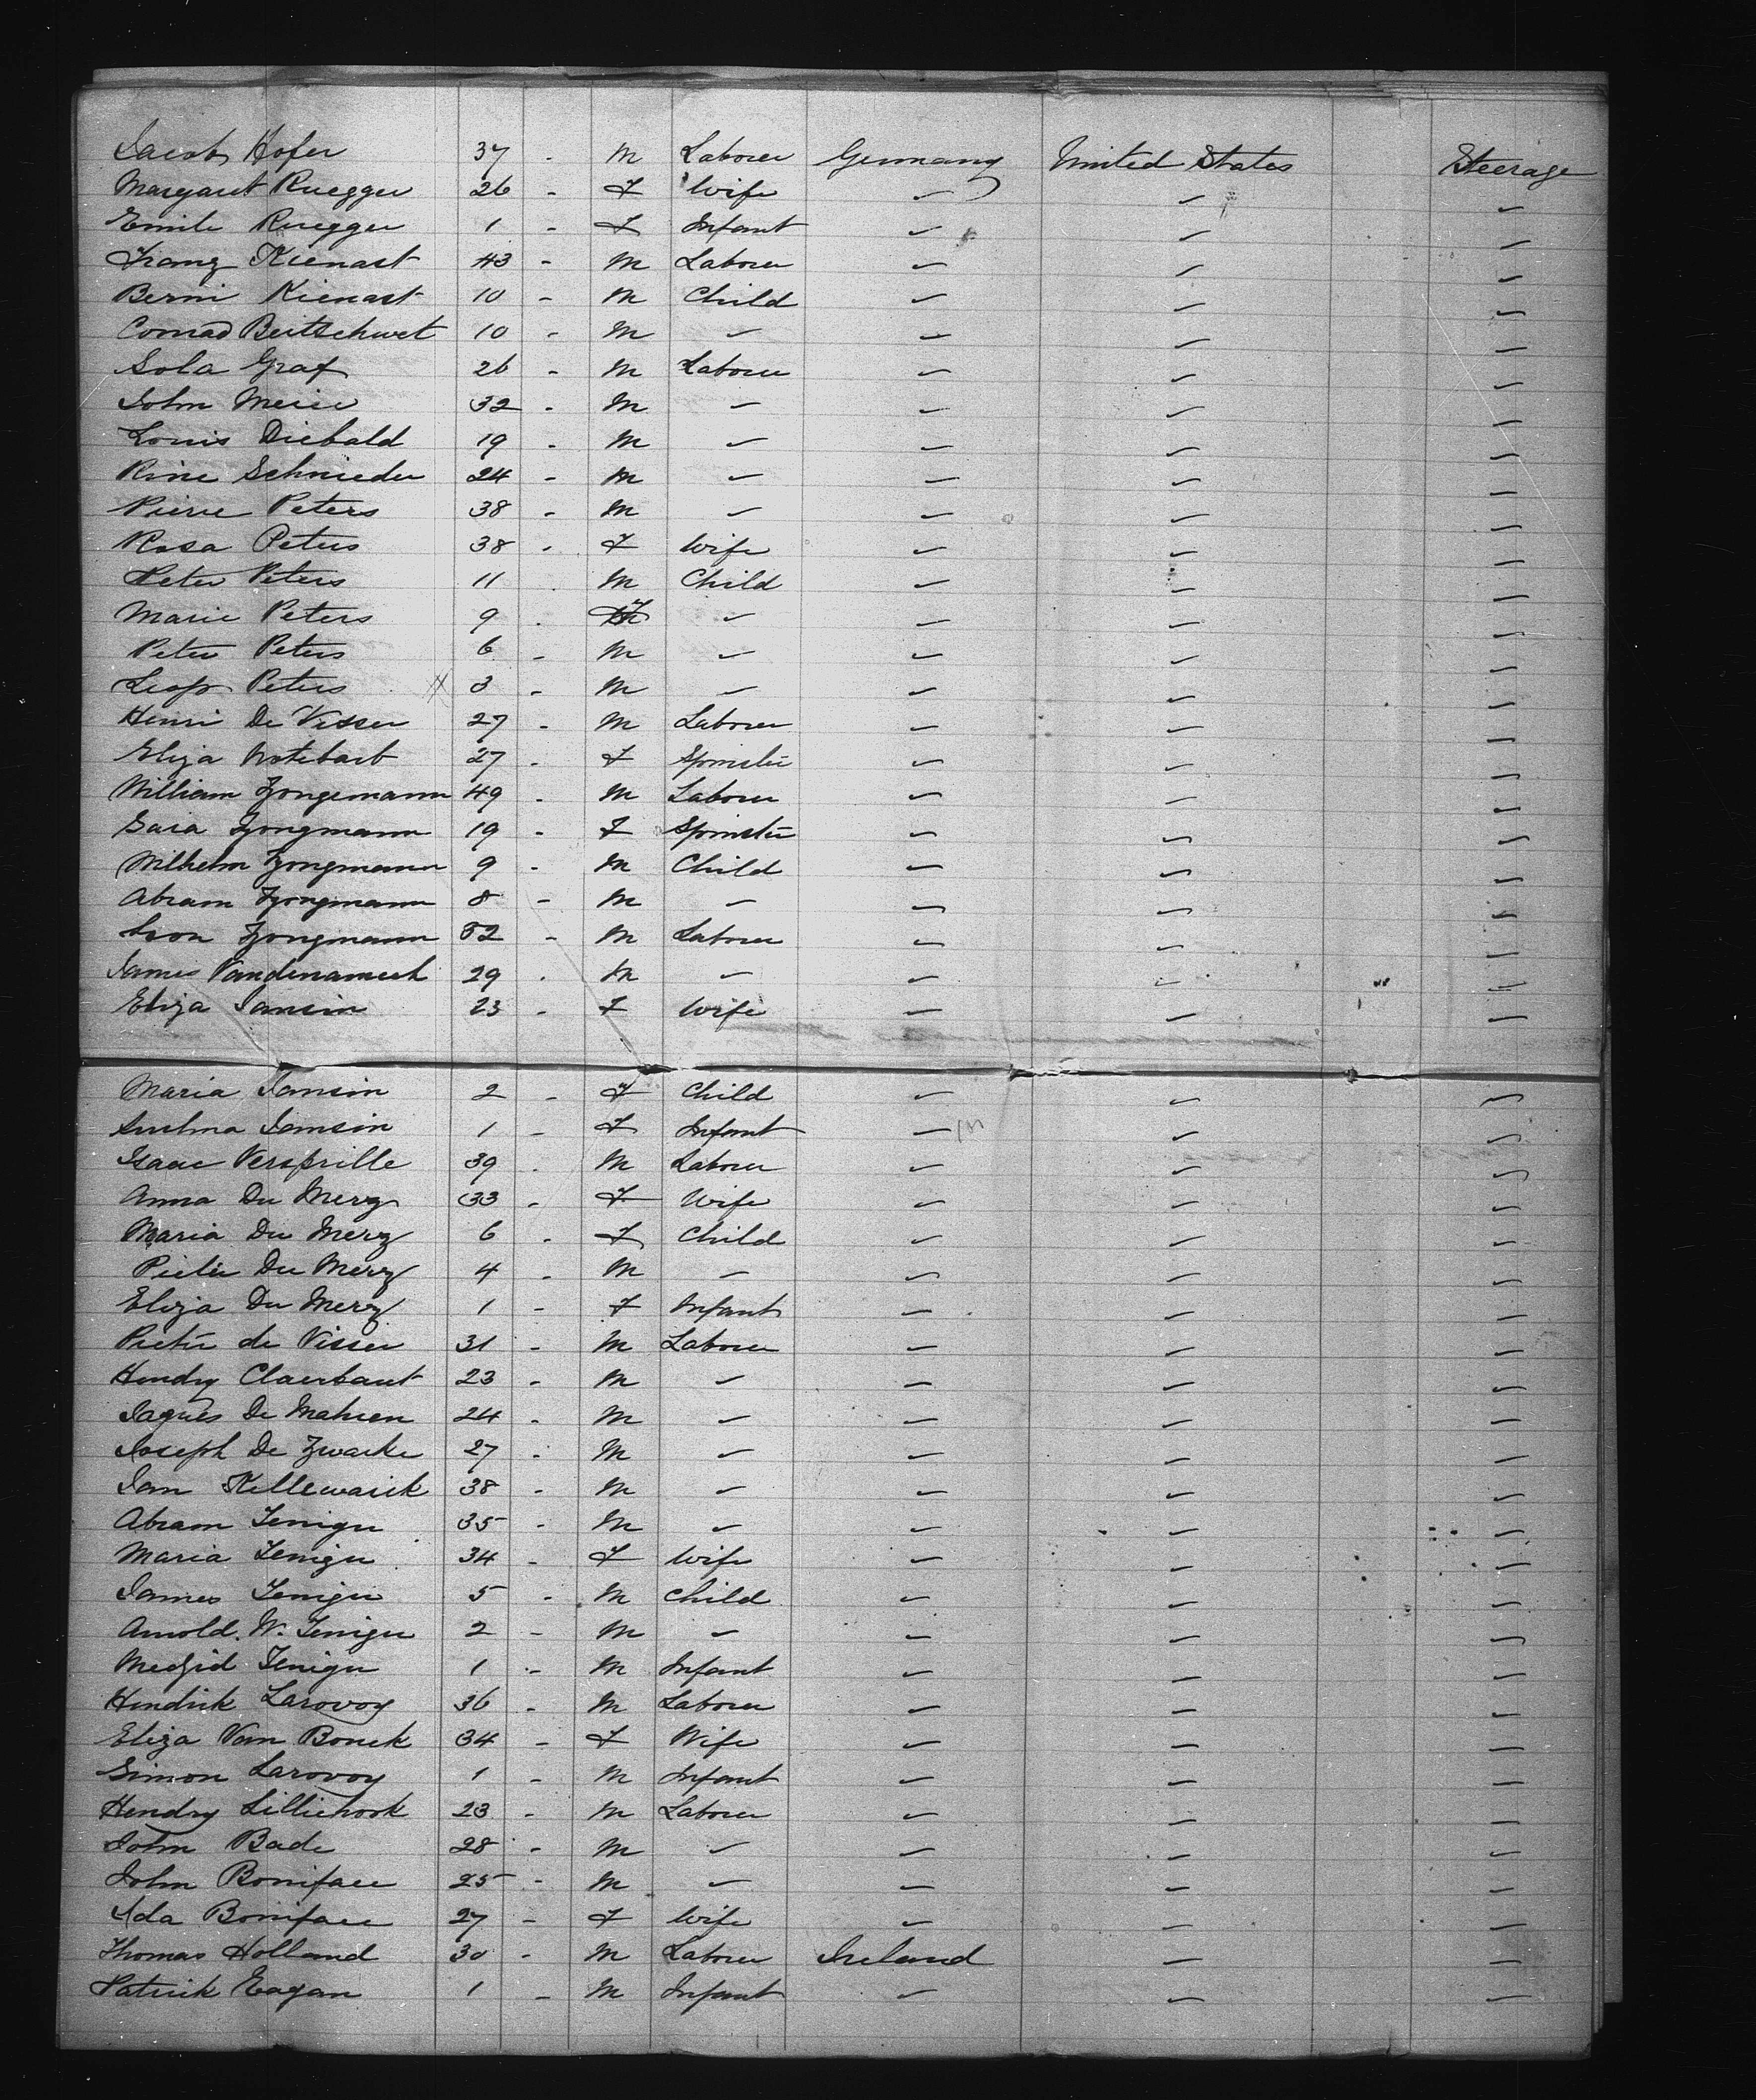 Jacob Hofer 37 - M Laborer Germany United States Steerage
Margaret Ruegger 26 - F Wife " " "
Emile Ruegger 1 - F Infant " " "
Franz Kienast 43 - M Laborer " " "
Berni Kienast 10 - M Child " " "
Conrad 10 - M " " " "
Sola Graf 26 - M Laborer " " "
John Meier 32 - M " " " "
Louis Diebald 19 - M " " " "
Rine Schnieder 24 - M " " " "
Pierre Peters 38 - M " " " "
Rosa Peters 38 - F Wife " " "
Peter Peters 11 M Child " " "
Marie Peters 9 - F " " " "
Peter Peters 6 - M " " " "
Leop Peters 3 - M " " " "
Henri De Visser 27 - M Laborer " " "
Eliza Notebart 27 - F Spinster " " "
William Zongemann 49 - M Laborer " " "
Sara Zongmann 19 - F Spinster " " "
Wilhelm Zongmann 9 - M Child " " "
Abram Zongmann 8 - M " " " "
Zongmann 52 - M Laborer " " "
James 29 - M " " " "
Eliza Jansin 23 - F Wife " " "
Maria Jansin 2 - F Child " " "
Jansin 1 - F Infant " " "
Isaac Versprille 39 - M Laborer " " "
Anna Du Merz 33 - F Wife " " "
Maria Du Merz 6 - F Child " " "
Pieter Du Merz 4 - M " " " "
Eliza Du Merz 1 - F Infant " " "
Pieter de Visser 31 - M Laborer " " "
Hendry Claerbaut 23 - M " " " "
Jaques De Mahien 24 - M " " " "
Joseph De Zwarke 27 - M " " " "
Jan Kellewaick 38 - M " " " "
Abram Jeniger 35 - M " " " "
Maria Jeniger 34 - F Wife " " "
James Jeniger 5 - M Child " " "
Arnold. W. Jeniger 2 - M " " " "
Jeniger 1 - M Infant " " "
Hendrik Larovoy 36 - M Laborer " " "
Eliza Van Bonek 34 - F Wife " " "
Simon Larovoy 1 - M Infant " " "
Hendry Lilliehook 23 - M Laborer " " "
John Bade 28 - M " " " "
John Boniface 25 - M " " " "
Ida Boniface 27 - F Wife " " "
Thomas Holland 30 - M Laborer Ireland " "
Patrick Eagan 1 - M Infant " " "